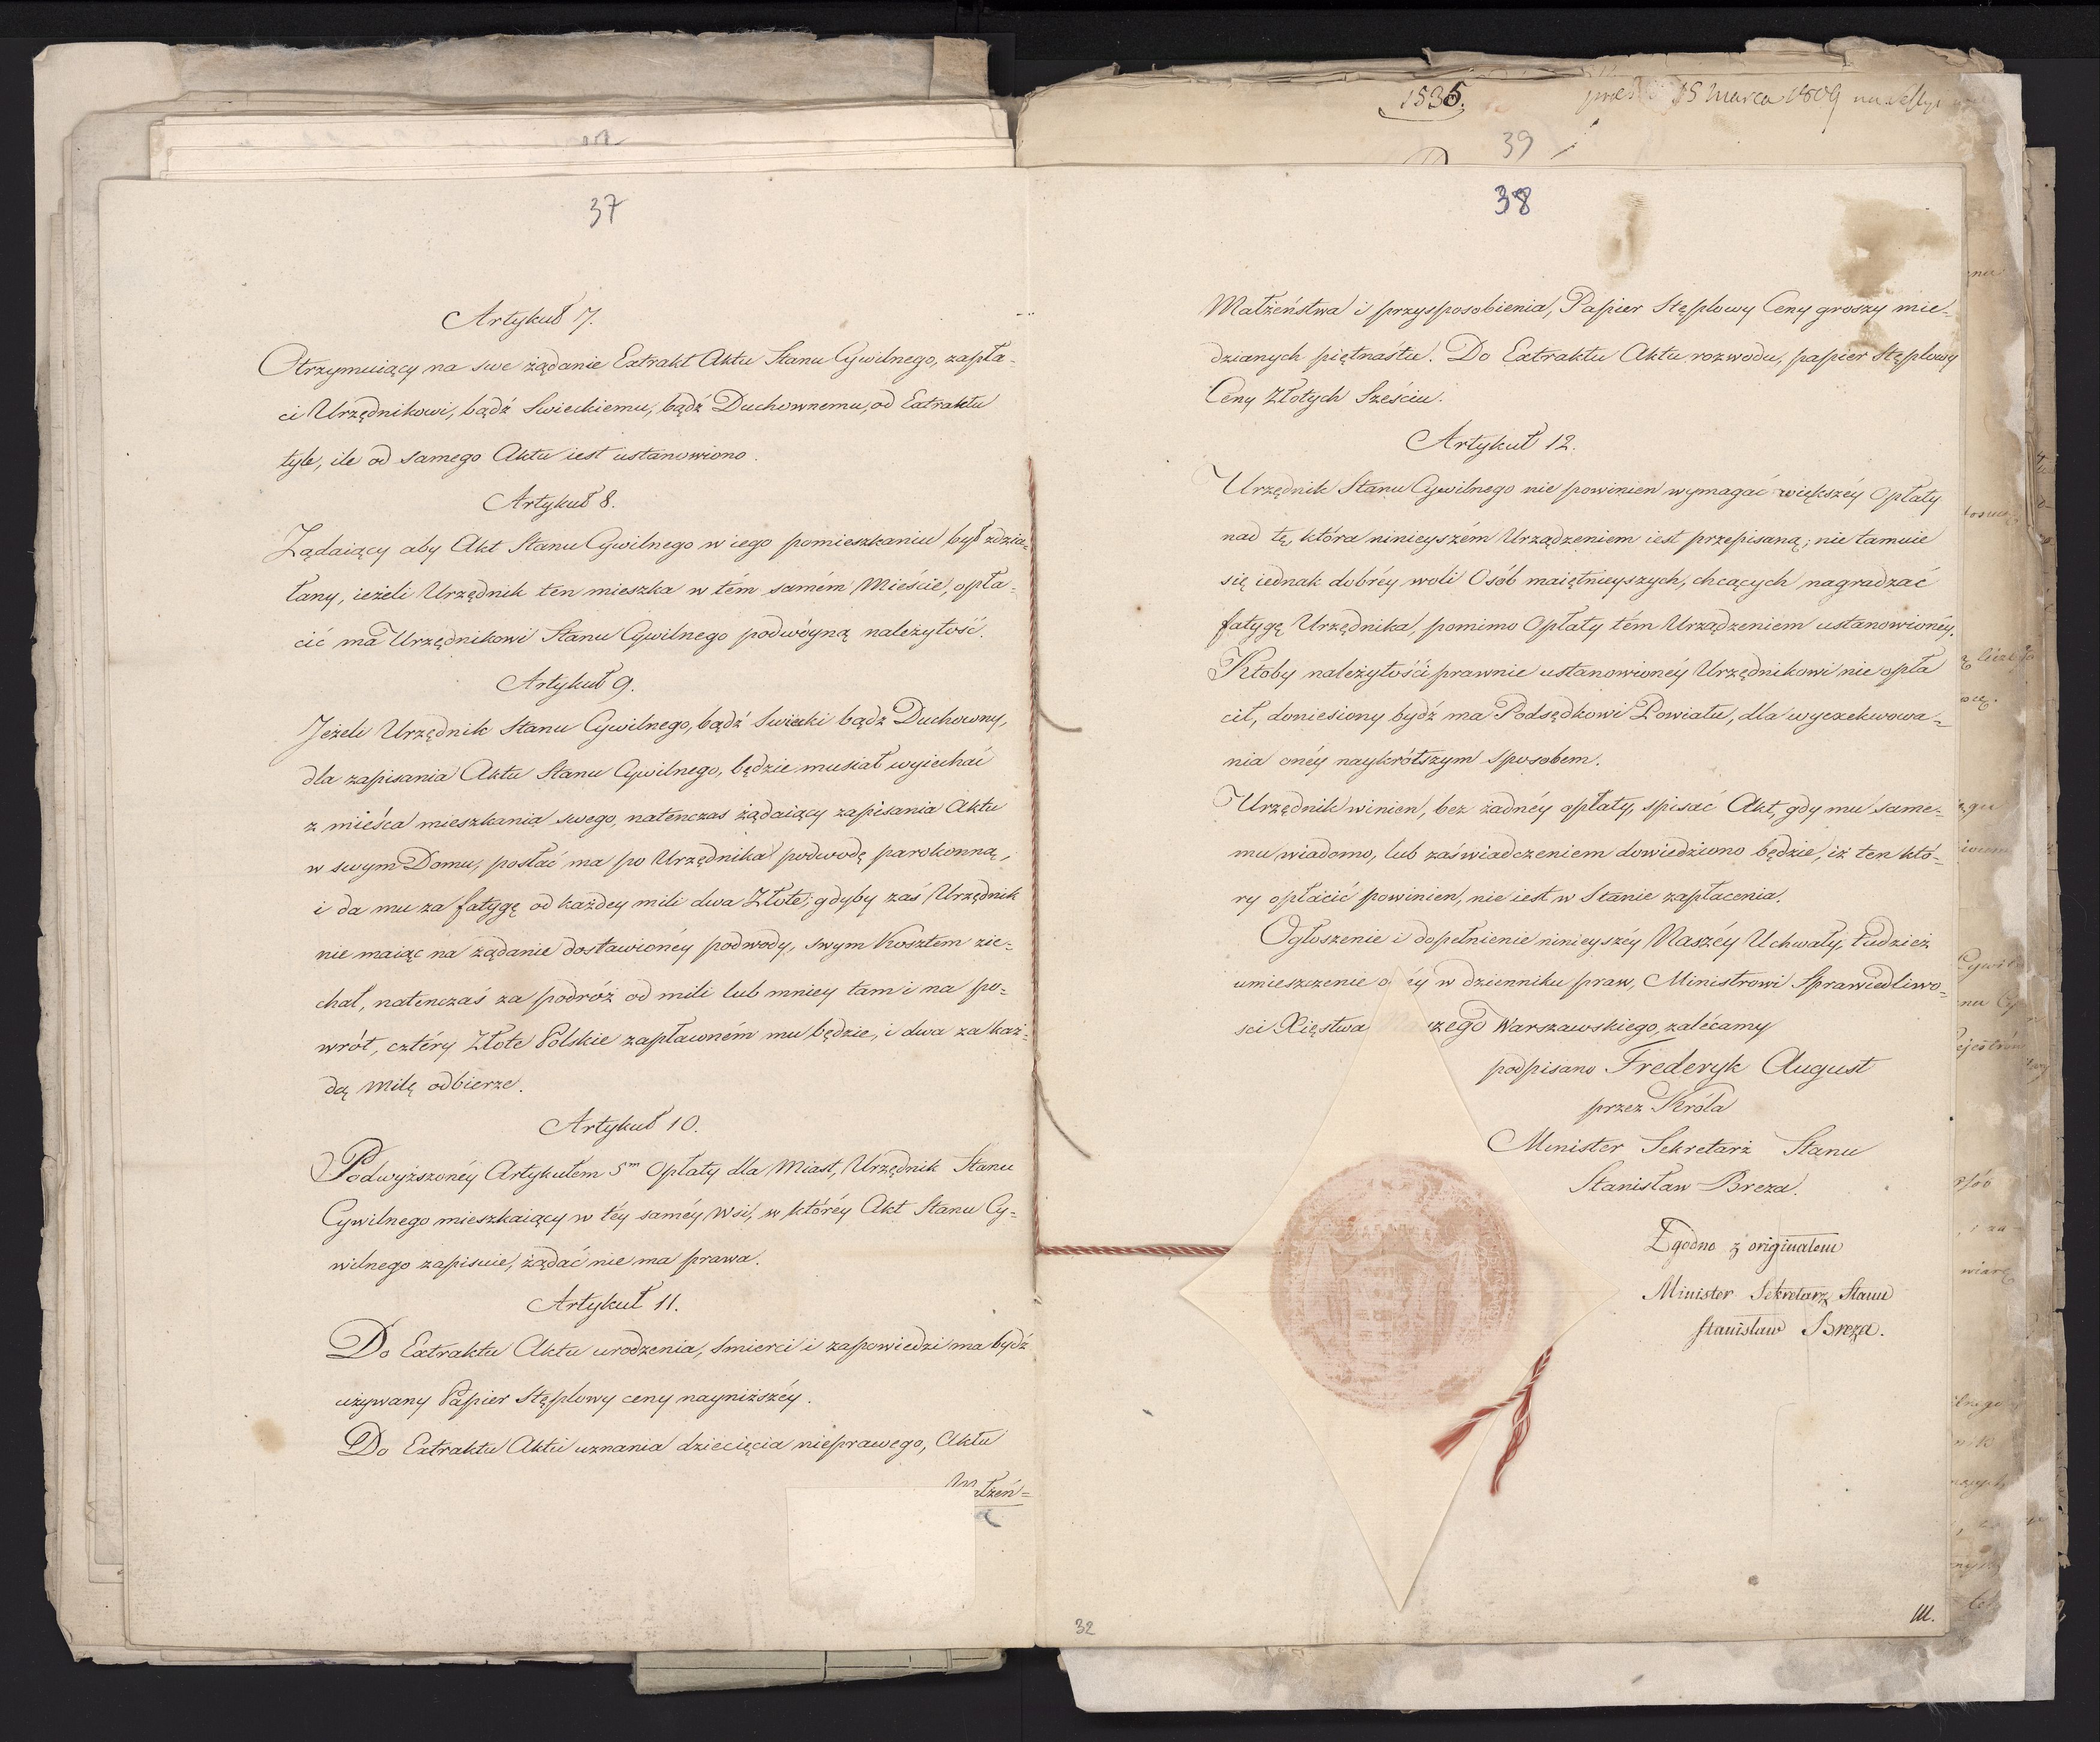 37
Artykuł 7.
Otrzymuiący na swe żądanie Extrakt Aktu Stanu Cywilnego, zapła-
ci Urzędnikowi, bądź Swieckiemu, bądź Duchownemu, od Extraktu
tyle, ile od samego Aktu iest ustanowiono.
Artykuł 8.
Żądaiący aby Akt Stanu Cywilnego w iego pomieszkaniu był zdzia-
łany, ieżeli Urzędnik ten mieszka w tém samém Mieście, opła-
cić ma Urzędnikowi Stanu Cywilnego podwóyną należytość.
Artykuł 9.
Jeżeli Urzędnik Stanu Cywilnego, bądź Swiecki bądz Duchowny,
dla zapisania Aktu Stanu Cywilnego, będzie musiał wyiechać
z mieśca mieszkania swego, natenczas żądaiący zapisania Aktu
w swym Domu, posłać ma po Urzędnika podwodę parokonną,
i da mu za fatygę od każdey mili dwa Złote; gdyby zaś Urzędnik
nie maiąc na żądanie dostawionéy podwody, swym Kosztem zie-
chał, natenczas za podróż od mili lub mniey tam i na po-
wrót, cztéry Złote Polskie zapławném mu będzie, i dwa za każ-
dą milę odbierze.
Artykuł 10.
Podwyższonéy Artykułem 5m Opłaty dla Miast, Urzędnik Stanu
Cywilnego mieszkaiący w téy saméy Wsi, w któréy Akt Stanu Cy-
wilnego zapisuie, żądać nie ma prawa.
Artykuł 11.
Do Extraktu Aktu urodzenia, smierci i zapowiedzi ma bydź
używany Papier Stęplowy ceny nayniższéy.
Do Extraktu Aktu uznania dziecięcia nieprawego, Aktu
Małżeń-
1535.
15 marca 1809
39
38
Małżeństwa i przysposobienia, Papier Stęplowy Ceny groszy mie-
dzianych piętnastu. Do Extraktu Aktu rozwodu, papier Stęplowy
Ceny Złotych Sześciu.
Artykuł 12.
Urzędnik Stanu Cywilnego nie powinien wymagać większéy Opłaty
nad tę, która ninieyszém Urządzeniem iest przepisaną; nie tamuie
się iednak dobréy woli Osób maiętnieyszych, chcących nagradzać
fatygę Urzędnika, pomimo Opłaty tém Urządzeniem ustanowionéy.
Ktoby należytości prawnie ustanowionéy Urzędnikowi nie opła
cił, doniesiony bydź ma Podsędkowi Powiatu, dla wyexekwowa-
nia onéy naykrótszym sposobem.
Urzędnik winien, bez żadnéy opłaty, spisać Akt, gdy mu same-
mu wiadomo, lub zaświadczeniem dowiedziono będzie, iż ten któ-
ry opłacić powinien, nie iest w Stanie zapłacenia.
Ogłoszenie i dopełnienie ninieyszéy Naszéy Uchwały, tudzież
umieszczenie o éy w dzienniku praw, Ministrowi Sprawiedliwo-
sci Xięstwa zego Warszawskiego, zalécamy
podpisano Frederyk August
przez Króla
Minister Sekretarz Stanu
Stanisław Breza.
Zgodno z originałem
Minister Sekretarz Stanu
Stanisław Breza.
32
III.